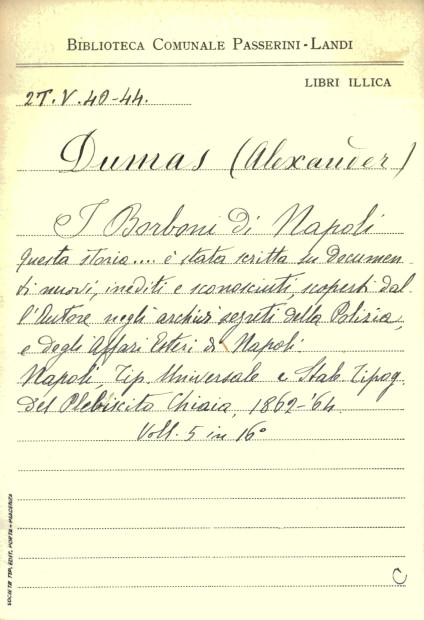 BIBLIOTECA COMUNALE PASSERINI-LANDI
LIBRI ILLICA
2T.V.40-44.
Dumas (Alexander)
I Borboni di Napoli
Questa storia.... è stata scritta su documen-
ti nuovi, inediti e sconosciuti, scoperti dal-
l'Autore negli archivi segreti della Polizia,
e degli Affari Esteri di Napoli.
Napoli, Tip. Universale e Stab. Tipog.
del Plebiscito Chiaia, 1862-'64.
Voll. 5 in 16°
C
SOCIETÀ TIP. EDIT. PORTA - PIACENZA